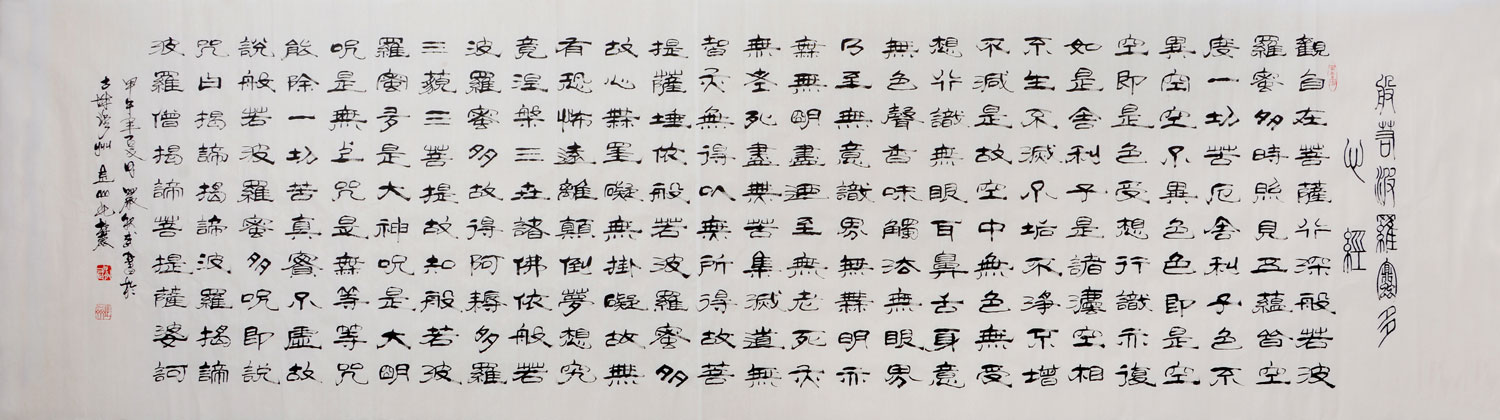 般若波羅蜜多
心經
觀自在菩薩行深般若波
羅蜜多時照見五蘊皆空
度一切苦厄舍利子色不
異空空不異色色即是空
空即是色受想行識亦復
如是舍利子是諸灋空相
不生不滅不垢不淨不增
不減是故空中無色無受
想行識無眼耳鼻舌身意
無色聲香味觸法無眼界
乃至無意識界無無明亦
無無明盡迺至無老死亦
無老死盡無苦集滅道無
智亦無得以無所得故菩
提薩埵依般若波羅蜜多
故心無罣礙無掛礙故無
有恐怖遠離顛倒夢想究
竟涅槃三世諸佛依般若
波羅蜜多故得阿耨多羅
三藐三菩提故知般若波
羅蜜多是大神呪是大明
呪是無上咒是無等等咒
能除一切苦真實不虛故
說般若波羅蜜多呪即說
咒曰揭諦揭諦波羅揭諦
波羅僧揭諦菩提薩婆訶
甲午年夏月書於